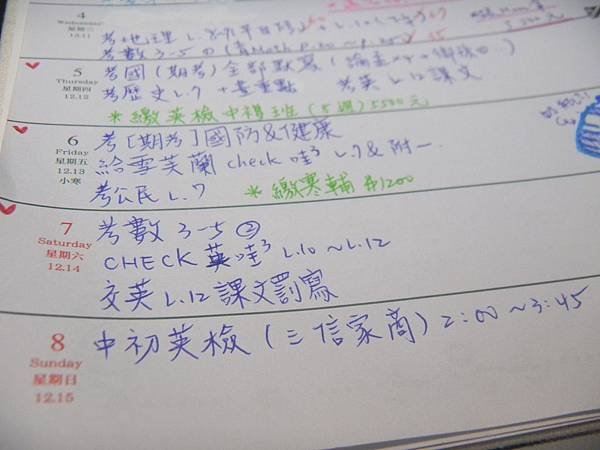 4
Wednesday
星期三
12.11
考地理 L.8
考數 3-5 ①
5
Thursday
星期四
12.12
考國(期考)全部默寫
考歷史 L.7 +去重點 考英 L.12 課文
*繳英檢中複班(5週)5500元
6
Friday
星期五
12.13
小寒
考[期考]國防&健康
給雪芙蘭 check 哇³ L.7 & 附一
考公民 L.7 *繳寒輔 #1200
7
Saturday
星期六
12.14
考數 3-5 ②
CHECK 英哇³ L.10 ~ L.12
交英 L.12 課文罰寫
8
Sunday
星期日
12.15
中初英檢(三信家商)2:00~3:45